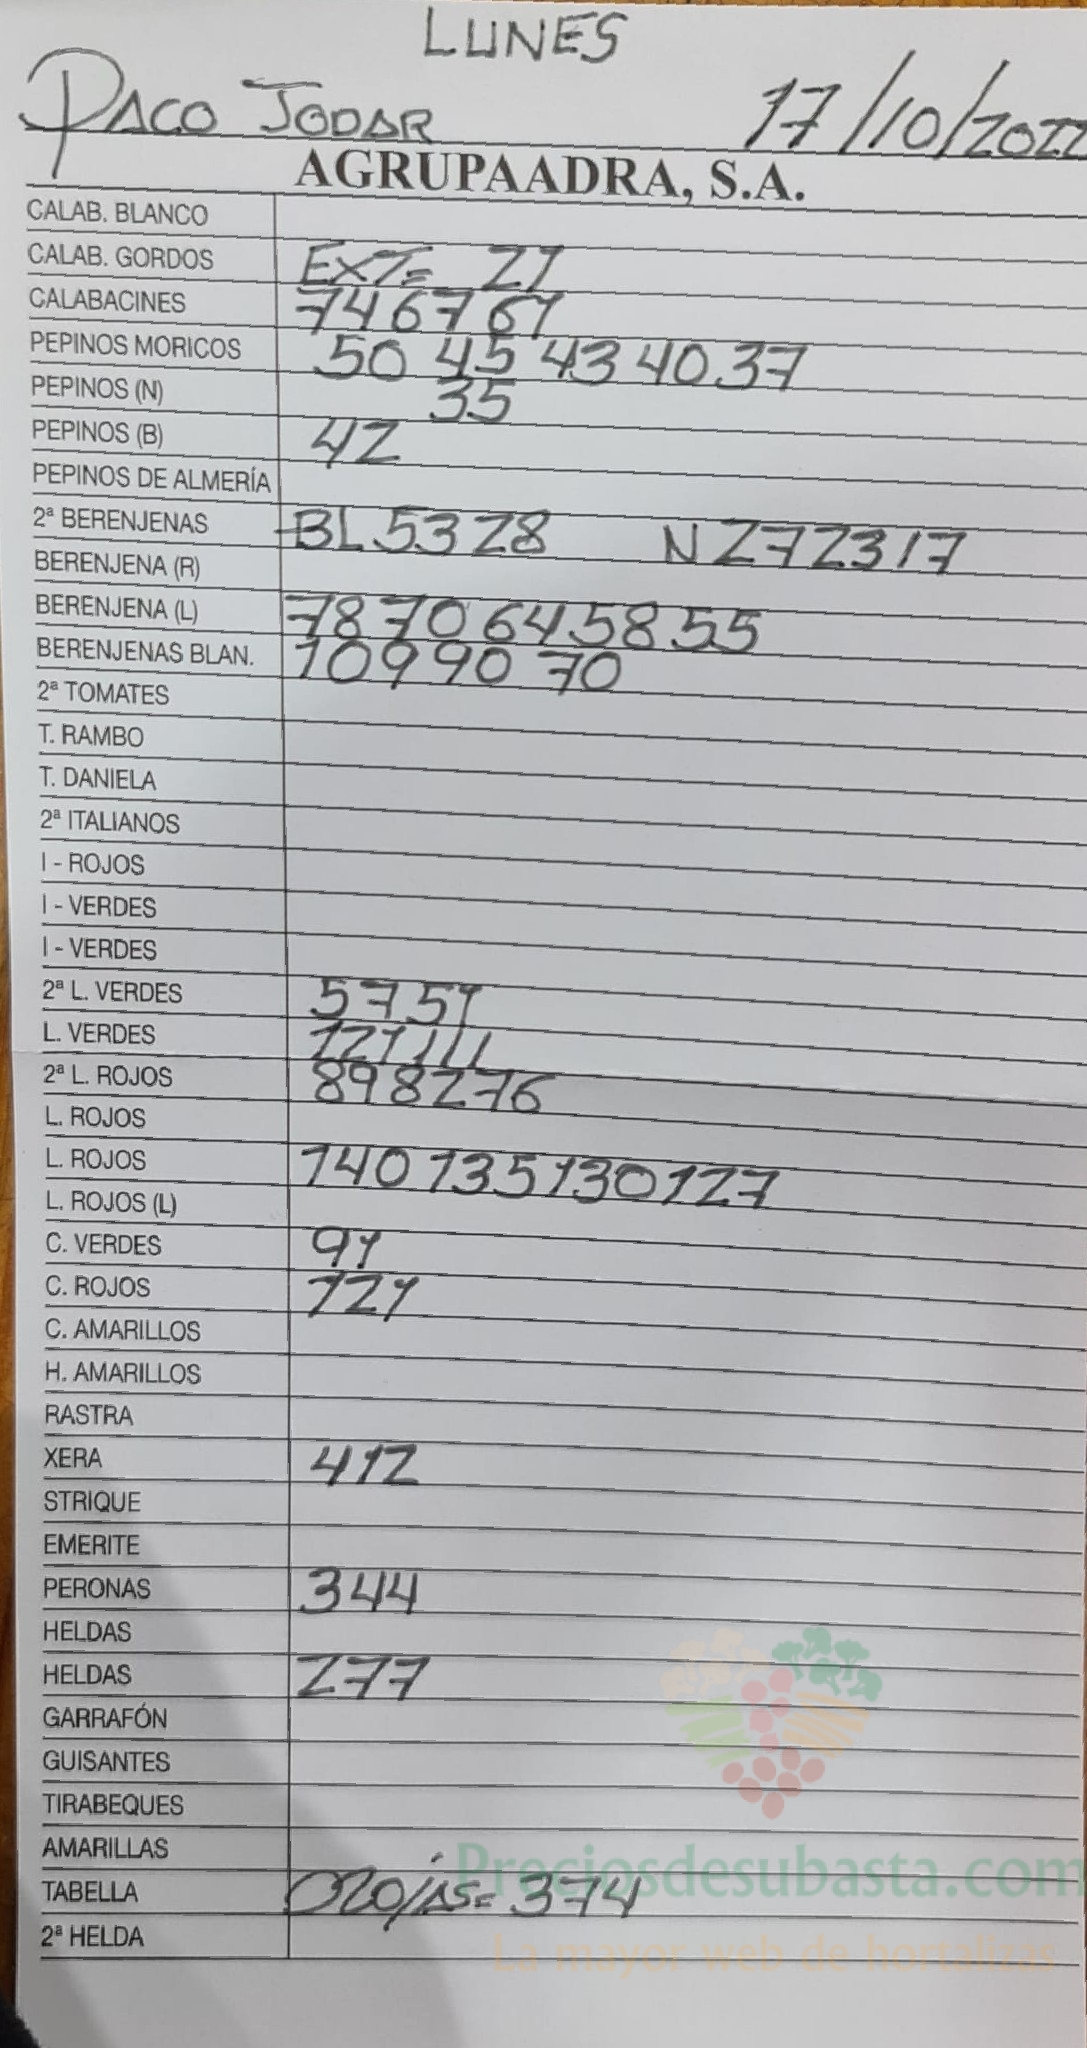 LUNES
PACO JODAR 17/10/2022
AGRUPAADRA, S.A.
CALAB. BLANCO
CALAB. GORDOS EXT= 21
CALABACINES 74 67 61
PEPINOS MORICOS 50 45 43 40 37
PEPINOS (N) 35
PEPINOS (B) 42
PEPINOS DE ALMERÍA
2ª BERENJENAS BL 53 28 N 27 23 17
BERENJENA (R)
BERENJENA (L) 78 70 64 58 55
BERENJENAS BLAN. 109 90 70
2ª TOMATES
T. RAMBO
T. DANIELA
2ª ITALIANOS
I - ROJOS
I - VERDES
I - VERDES
2ª L. VERDES 57 51
L. VERDES 121 111
2ª L. ROJOS 89 82 76
L. ROJOS
L. ROJOS 140 135 130 127
L. ROJOS (L)
C. VERDES 91
C. ROJOS 121
C. AMARILLOS
H. AMARILLOS
RASTRA
XERA 412
STRIQUE
EMERITE
PERONAS 344
HELDAS
HELDAS 277
GARRAFÓN
GUISANTES
TIRABEQUES
AMARILLAS
Preciosdesubasta.com
TABELLA = 374
La mayor web de hortalizas
2ª HELDA